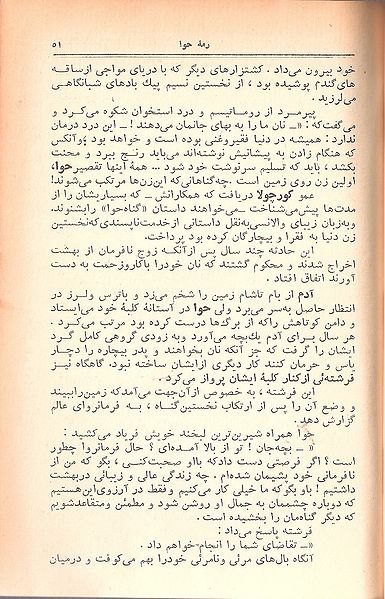 رمهٔ حوا ۵۱
خود بیرون می‌داد . کشتزارهای دیگر که با دریای مواجی از ساقه
های گندم پوشیده بود ، از نخستین نسیم پیك بادهای شبانگاهی
می‌لرزید .
پیرمرد از روماتیسم و درد استخوان شکوه می‌کرد و
می‌گفت که : «ــ نان ما را به بهای جانمان می‌دهند ! ــ این درد درمان
ندارد : همیشه در دنیا فقیر وغنی بوده است و خواهد بود ؛ وآنکس
که هنگام زادن به پیشانیش نوشته‌اند می‌باید رنج ببرد و محنت
بکشد ، باید که تسلیم سرنوشت خود شود ... همهٔ اینها تقصیر حوا،
اولین زن روی زمین است . چه گناهانی که این زن‌ها مرتکب می‌شوند!
عمو کورچولا دریافت که همکارانش ــ که بسیاریشان را از
مدت‌ها پیش می‌شناخت ــ می‌خواهند داستان «گناه حوا» را بشنوند.
و به زبان زیبای والانسی به نقل داستانی از خدمت ناپسندی که نخستین
زن دنیا به فقرا و بیچارگان کرده بود پرداخت.
این حادثه چند سال پس از آنکه زوج نافرمان از بهشت
اخراج شدند و محکوم گشتند که نان خود را با کار و زحمت به دست
آورند اتفاق افتاد .
آدم از بام تا شام زمین را شخم می‌زد و با ترس و لرز در
انتظار حاصل به سر می‌برد ولی حوا در آستانهٔ کلبهٔ خود می‌ایستاد
و دامن کوتاهش را که از برگ‌ها درست کرده بود مرتب می‌کرد .
هر سال برای آدم یك بچه می‌آورد و به زودی گروهی کامل گرد
ایشان را گرفت که جز آنکه نان بخواهند و پدر بیچاره را دچار
یأس و حرمان کنند کار دیگری از ایشان ساخته نبود. گاهگاه نیز
فرشته‌ئی از کنار کلبهٔ ایشان پرواز می‌کرد .
این فرشته ، به خصوص از آن جهت می‌آمد که زمین را ببیند
و وضع آن را پس از ارتکاب نخستین گناه ، به فرمانروای عالم
گزارش دهد .
حوا همراه شیرین‌ترین لبخند خویش فریاد می‌کشید :
«ــ بچه‌جان ! تو از بالا آمده‌ای ؟ حال فرمانروا چطور
است ؟ اگر فرصتی دست داد که با او صحبت کنی ، بگو که من از
نافرمانی خود پشیمان شده‌ام . چه زندگی عالی و زیبائی در بهشت
داشتیم ! باو بگو که ما خیلی کار می‌کنیم و فقط در آرزوی این هستیم
که دوباره چشممان به جمال او روشن شود و مطمئن و متقاعد شویم
که دیگر گناهمان را بخشیده است .
فرشته پاسخ می‌داد :
«ــ تقاضای شما را انجام خواهم داد .
آنگاه بال‌های مرئی و نامرئی خود را بهم می‌کوفت و درمیان